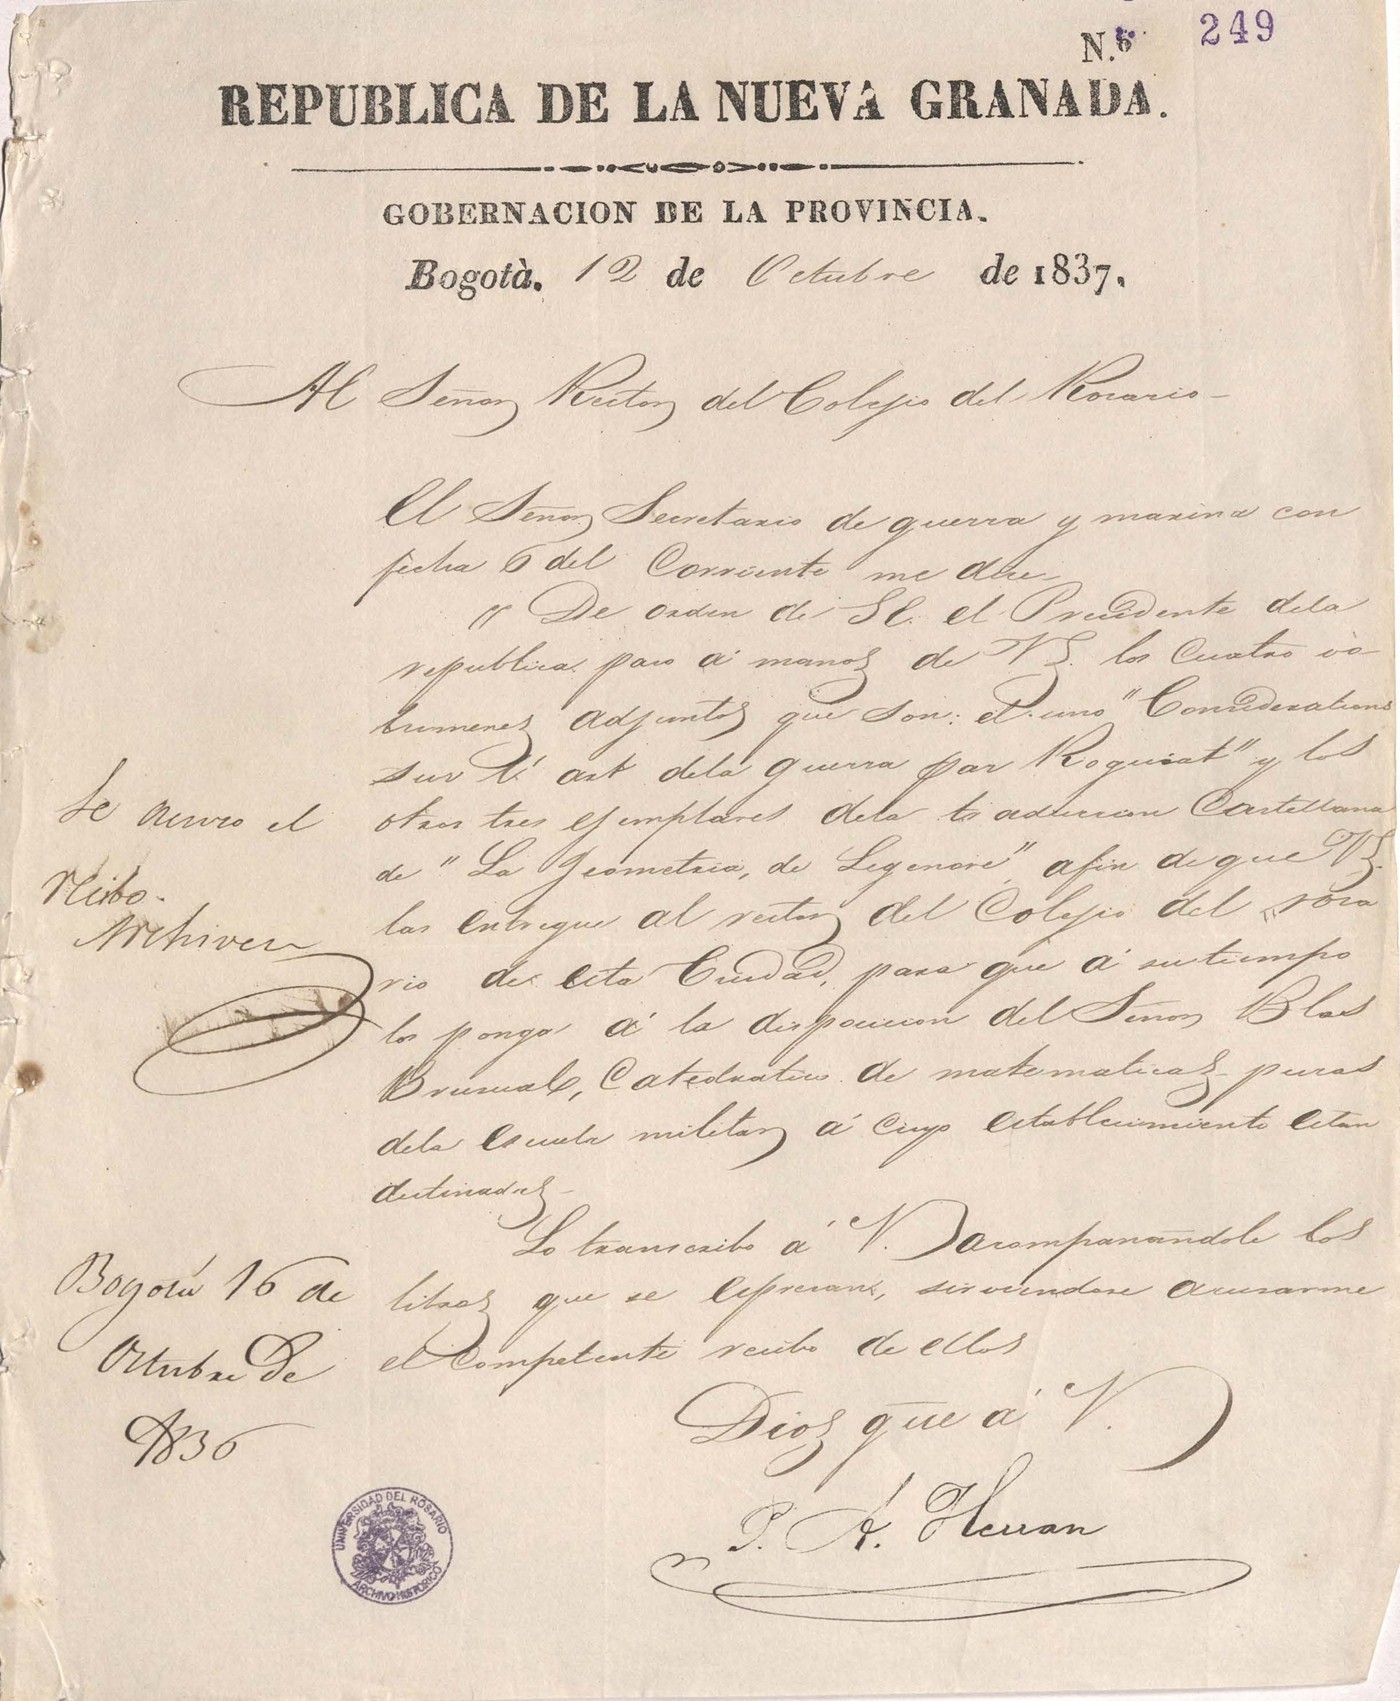 249
N.º
REPUBLICA DE LA NUEVA GRANADA.
GOBERNACION DE LA PROVINCIA.
Bogotà. 12 de Octubre de 1837.
Al Señor Rector del Colejio del Rosario
El Señor Secretario de guerra y marina con
fecha 6 del Corriente me dice
" De orden de SE. el Presidente dela
republica paso á manos de VS. los cuatro vo-
lumenes adjuntos que son: el uno "Considerations
sur l' art dela guerra par Roguiat" y los
otros tres ejemplares dela traduccion Castellana
de "La Geometria, de Legendre", afin de que VS.
los entregue al rector del Colejio del rosa
rio de esta Ciudad, para que á su tiempo
los ponga á la disposicion del Señor Blas
Bruzual, Catedratico de matematicas puras
dela escuela militar á cuyo establecimiento estan
destinados
Lo transcribo á V. acompañandole los
libros que se espresan, sirviendose acusarme
el competente recibo de ellos
Dios gue á V.
P. A. Herran
Se acuso el
recibo.
Archivese
Bogotá 16 de
Octubre De
1836
UNIVERSIDAD DEL ROSARIO
ARCHIVO HISTORICO